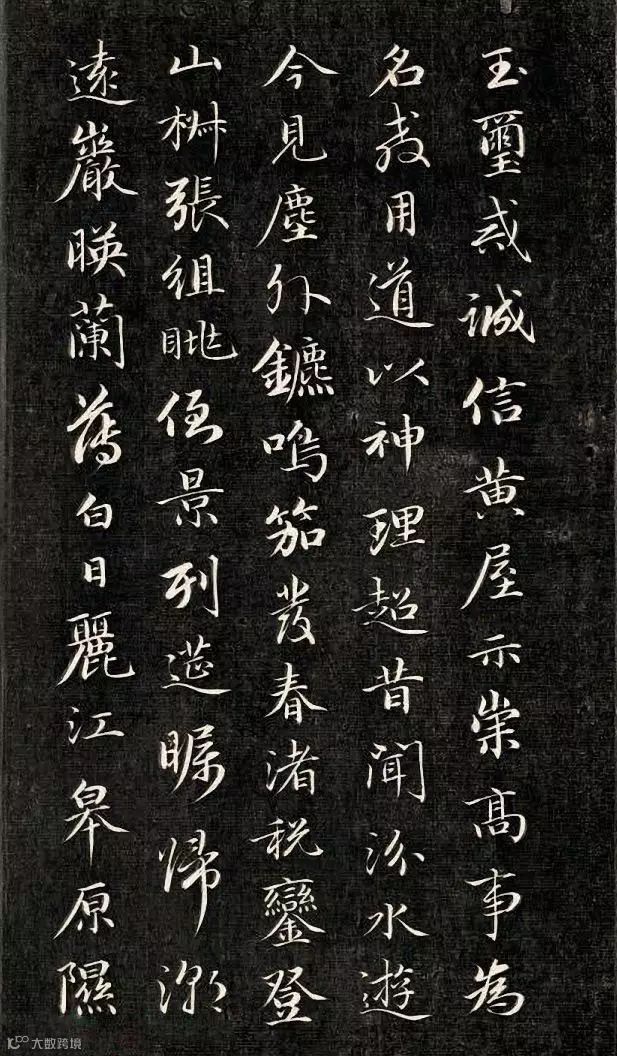 玉璽戒誠信黄屋示崇髙事為
名教用道以神理超昔聞汾水遊
今見塵外鑣鳴笳發春渚税鑾登
山椒張組眺倒景列筵瞩歸潮
遠巖暎蘭薄白日麗江皋原隰
大数跨境